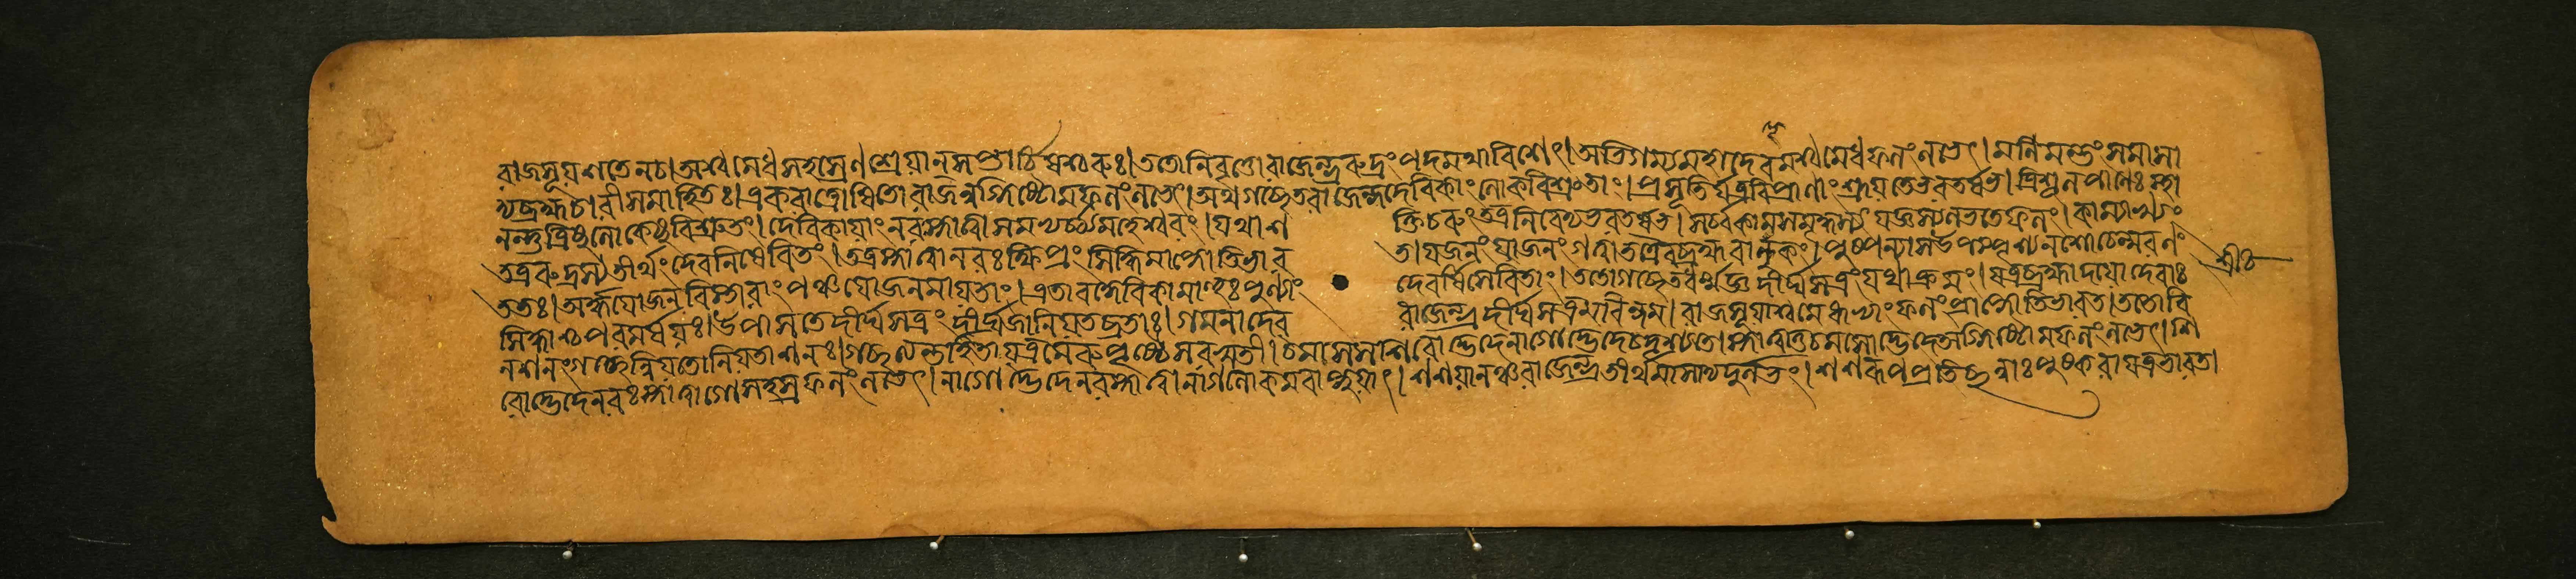 ৰাজসূয়শতেনচ।অশ্বমেধসহস্রেণশ্রেয়ানসপ্তার্চিষশ্চৰুঃ।ততোনিবৃত্তোৰাজেন্দ্রৰুদ্রংপদমথাবিশেৎ।অভিগম্যমহাদেৱমশ্বমেধফলংলভেৎ।মনিমন্তংসমাসা
দ্যব্রহ্মচাৰীসমাহিতঃ।একৰাত্রোষিতোৰাজন্নগ্নিষ্টোমফলংলভেৎ।অথগচ্ছেতৰাজেন্দ্রদেৱিকাংলোকবিশ্রুতাং।প্রসূতির্যত্রবিপ্রাণাংশ্রূয়তেভৰতর্ষভ।ত্রিশূলপাণেঃস্থা
নন্তত্ত্রিষুলোকেষুবিশ্রুতং।দেৱিকায়াংনৰস্নাত্বাসমভ্যর্চ্চ্যমহেশ্বৰং।যথাশ ক্তিচৰুংতত্রনিবেদ্যভৰতর্ষভ।সর্ব্বকামসমৃদ্ধস্যযজ্ঞস্যলভতেফলং।কামাখ্যং
তত্রৰুদ্রস্যতীর্থংদেৱনিষেবিতং।তত্রস্নাত্বানৰঃক্ষিপ্রংসিদ্ধিমাপ্নোতিভাৰ তা।যজনংযাজনংগত্বাতথৈৱব্রহ্মবালুকং।পুষ্পন্যাসউপস্পৃশ্যনশোচেন্মৰণং
ততঃ।অর্দ্ধযোজনবিস্তাৰাংপঞ্চযোজনমায়তাং।এতাৱদ্দেৱিকামাহুঃপুণ্যাং দেৱর্ষিসেবিতাং।ততোগচ্ছেতধর্মজ্ঞদীর্ঘসত্রংযথাক্রমং।যত্রব্রহ্মাদয়োদেৱাঃ
সিদ্ধাশ্চপৰমর্ষয়ঃ।উপাসতেদীর্ঘসত্রংদীক্ষিতানিয়তব্রতাঃ।গমনাদেৱ ৰাজেন্দ্রদীর্ঘসত্রমৰিন্দম।ৰাজসূয়াশ্বমেধাভ্যাংফলংপ্রাপ্নোতিভাৰত।ততোবি
নশনংগচ্ছেন্নিয়তোনিয়তাশনঃ।গচ্ছত্যন্তর্হিতাযত্রমেৰুপৃষ্ঠেসৰস্বতী।চমসেথশিৱোদ্ভেদেনাগোদ্ভেদেচদৃশ্যতে।স্নাত্বাতুচমসোদ্ভেদেঅগ্নিষ্টোমফলংলভেৎ।শি
ৱোদ্ভেদেনৰঃস্নাত্বাগোসহস্রফলংলভেৎ।নাগোদ্ভেদেনৰস্নাত্বানাগলোকমবাপ্নুয়াৎ।শশয়ানঞ্চৰাজেন্দ্রতীর্থমাসাদ্যদুর্লভং।শশৰূপপ্রতিচ্ছন্নাঃপুষ্কৰাযত্রভাৰত।
শ্রীঃ